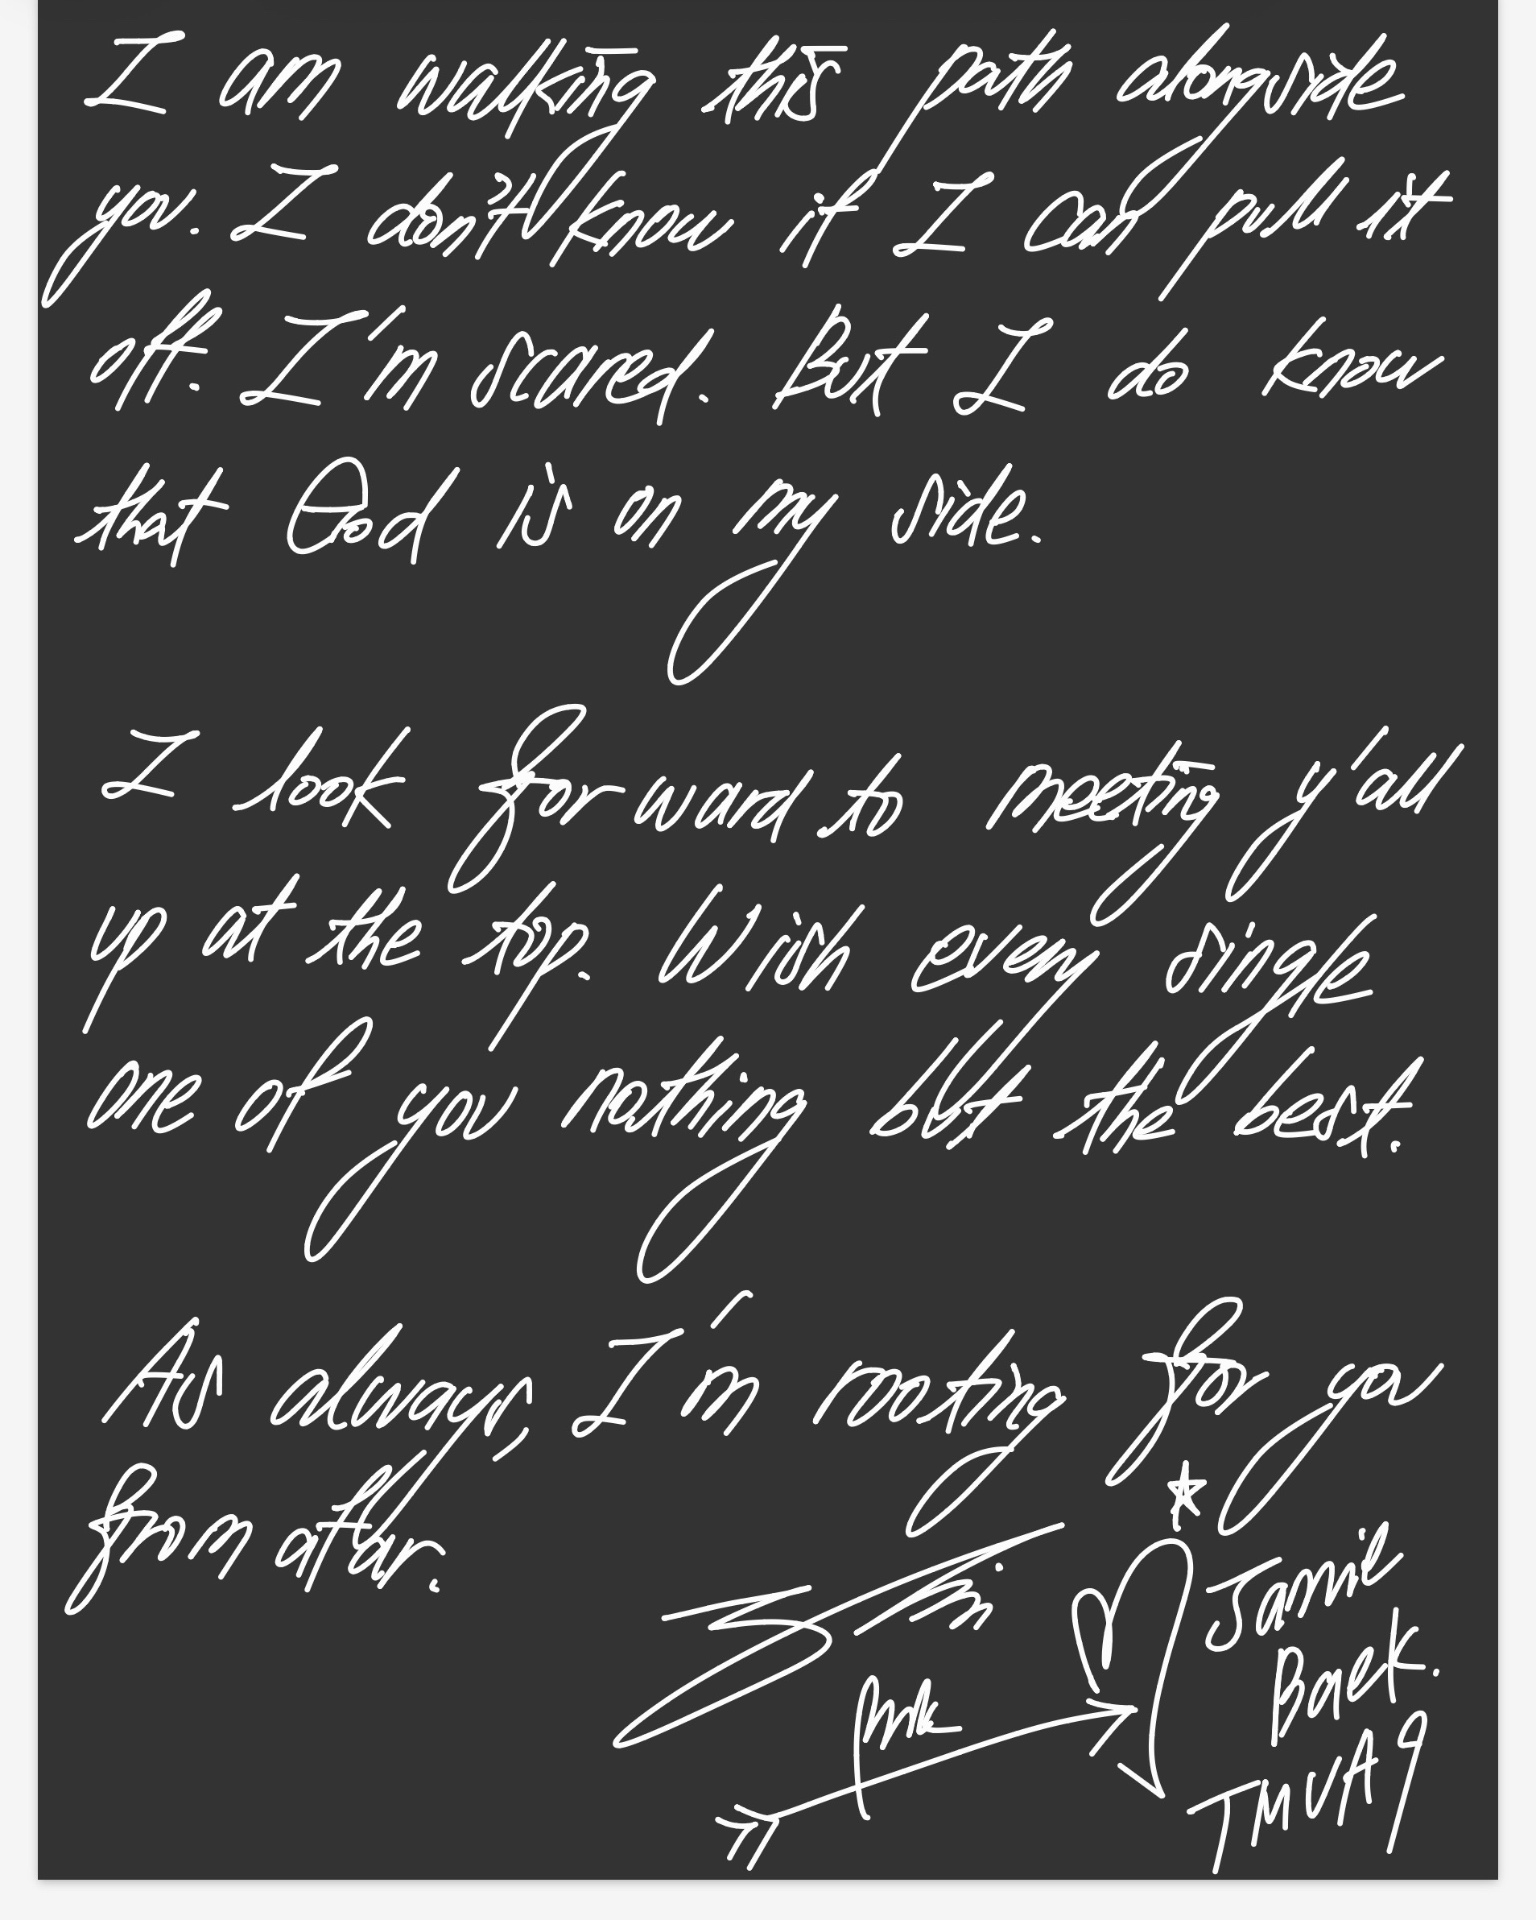 I am walking this path alongside
you. I don't know if I can pull it
off. I'm scared. But I do know
that God is on my side.
I look forward to meeting y'all
up at the top. Wish every single
one of you nothing but the best.
As always, I'm rooting for you
from afar.
Jamie
Baek.
TMUA9